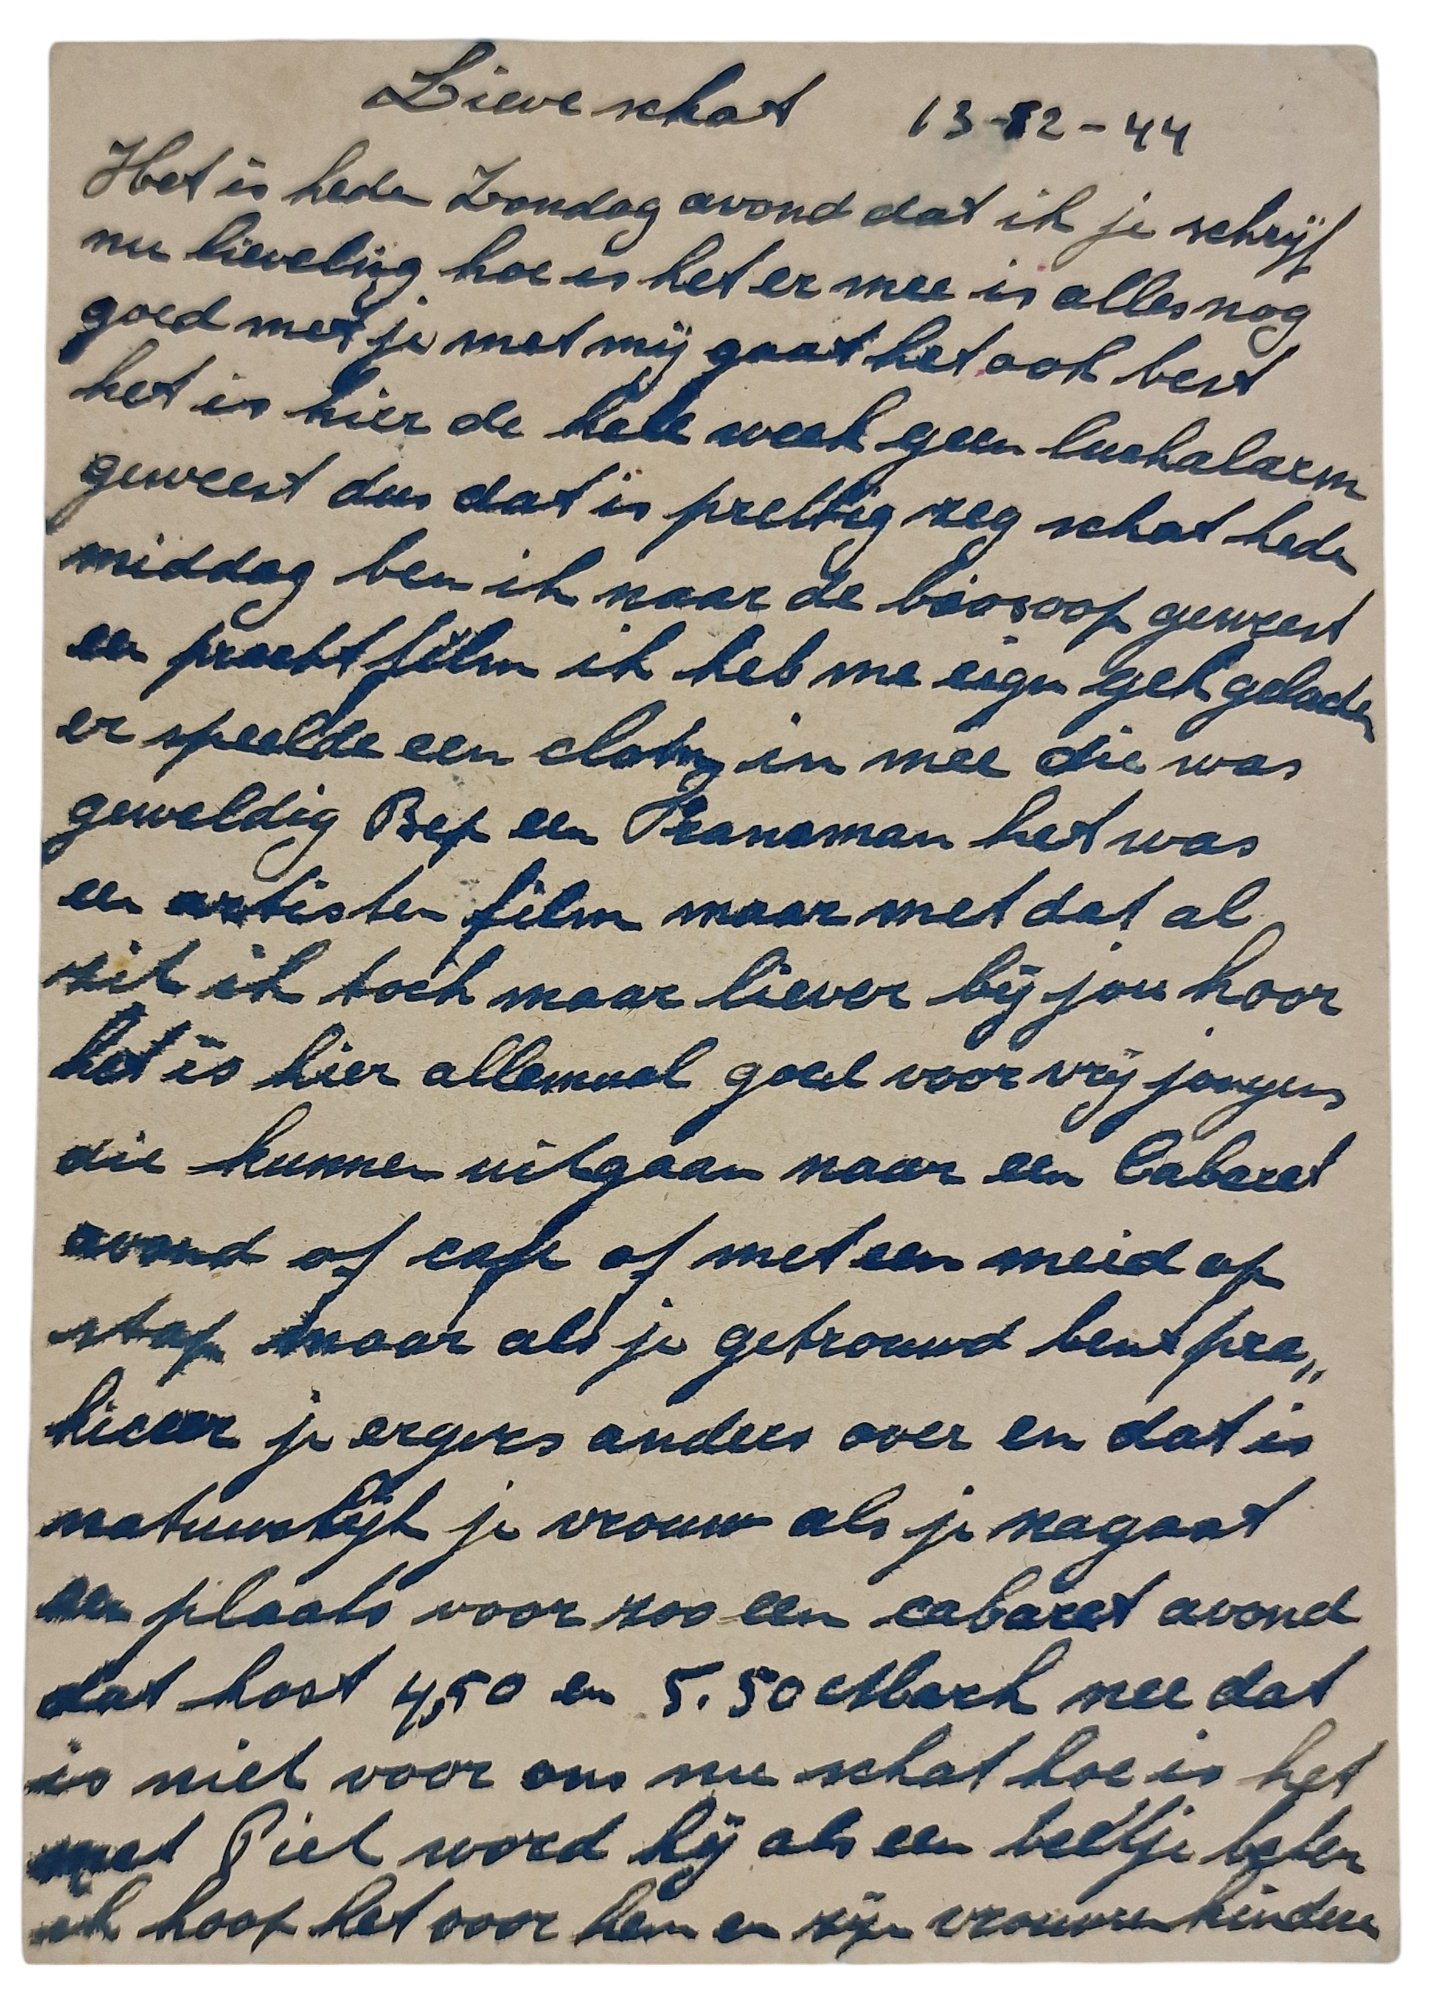 Lieve schat 13-12-44
Het is heden Zondag avond dat ik je schrijf
nu lieveling hoe is het er mee is alles nog
goed met je met mij gaat het ook best
het is hier de hele week geen luchalarm
geweest dus dat is prettig zeg schat heden
middag ben ik naar de bioscoop geweest
een pracht film ik heb me eigen gek gelachen
er speelde een clown in mee die was
geweldig Bep een Fransman het was
een artisten film maar met dat al
zit ik toch maar liever bij jou hoor
het is hier allemaal goed voor vrij jongens
die kunnen uitgaan naar een Cabaret
avond of cafe of met een meid op
stap maar als je getrouwd bent pra„
kiceer je ergens anders over en dat is
natuurlijk je vrouw als je nagaat
een plaats voor zoo een cabaret avond
dat kost 4,50 en 5.50 Mark nee dat
is niet voor ons nu schat hoe is het
met Piet word hij als een beetje beter
ik hoop het voor hem en zijn vrouw en kinderen